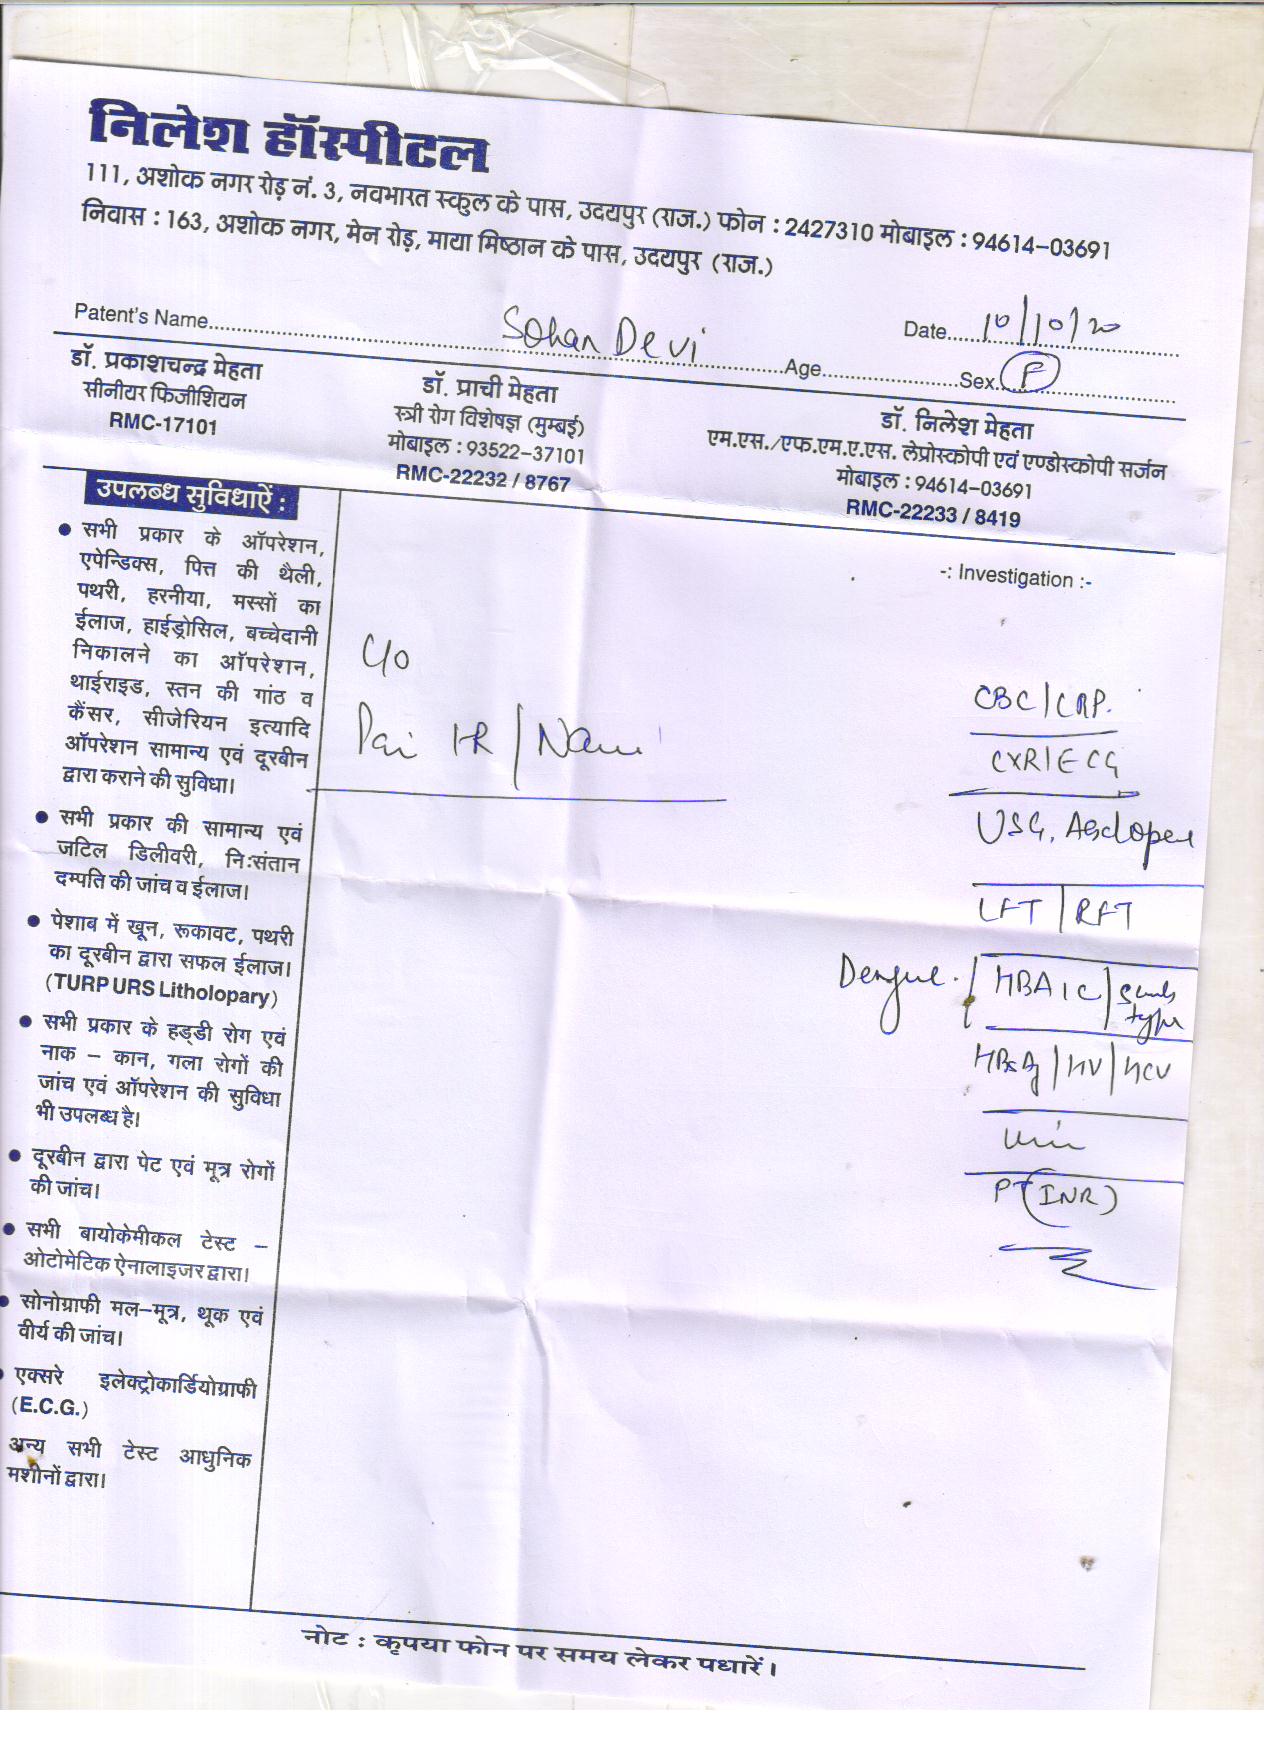 निलेश हॉस्पीटल
111, अशोक नगर रोड़ नं. 3, नवभारत स्कुल के पास, उदयपुर (राज.) फोन : 2427310 मोबाइल : 94614-03691
निवास : 163, अशोक नगर, मेन रोड़, माया मिष्ठान के पास, उदयपुर (राज.)
Patent's Name Sohan Devi Age Date 10/10/20
Sex F
डॉ. प्रकाशचन्द्र मेहता
सीनीयर फिजीशियन
RMC-17101
डॉ. प्राची मेहता
स्त्री रोग विशेषज्ञ (मुम्बई)
मोबाइल : 93522-37101
RMC-22232 / 8767
डॉ. निलेश मेहता
एम.एस./एफ.एम.ए.एस. लेप्रोस्कोपी एवं एण्डोस्कोपी सर्जन
मोबाइल : 94614-03691
RMC-22233 / 8419
उपलब्ध सुविधाऐं :
• सभी प्रकार के ऑपरेशन,
एपेन्डिक्स, पित्त की थैली,
पथरी, हरनीया, मस्सों का
ईलाज, हाईड्रोसिल, बच्चेदानी
निकालने का ऑपरेशन,
थाईराइड, स्तन की गांठ व
कैंसर, सीजेरियन इत्यादि
ऑपरेशन सामान्य एवं दूरबीन
द्वारा कराने की सुविधा।
• सभी प्रकार की सामान्य एवं
जटिल डिलीवरी, निःसंतान
दम्पति की जांच व ईलाज।
• पेशाब में खून, रूकावट, पथरी
का दूरबीन द्वारा सफल ईलाज।
(TURP URS Litholopary)
• सभी प्रकार के हड्डी रोग एवं
नाक – कान, गला रोगों की
जांच एवं ऑपरेशन की सुविधा
भी उपलब्ध है।
• दूरबीन द्वारा पेट एवं मूत्र रोगों
की जांच।
• सभी बायोकेमीकल टेस्ट –
ओटोमेटिक ऐनालाइजर द्वारा।
• सोनोग्राफी मल–मूत्र, थूक एवं
वीर्य की जांच।
• एक्सरे इलेक्ट्रोकार्डियोग्राफी
(E.C.G.)
अन्य सभी टेस्ट आधुनिक
मशीनों द्वारा।
C/O
-: Investigation :-
CBC/CRP.
CXR/ECG
USG,
LFT/RFT
Dengue. / HBA1C/
type
HBsAg/HIV/HCV
PT(INR)
नोट : कृपया फोन पर समय लेकर पधारें।